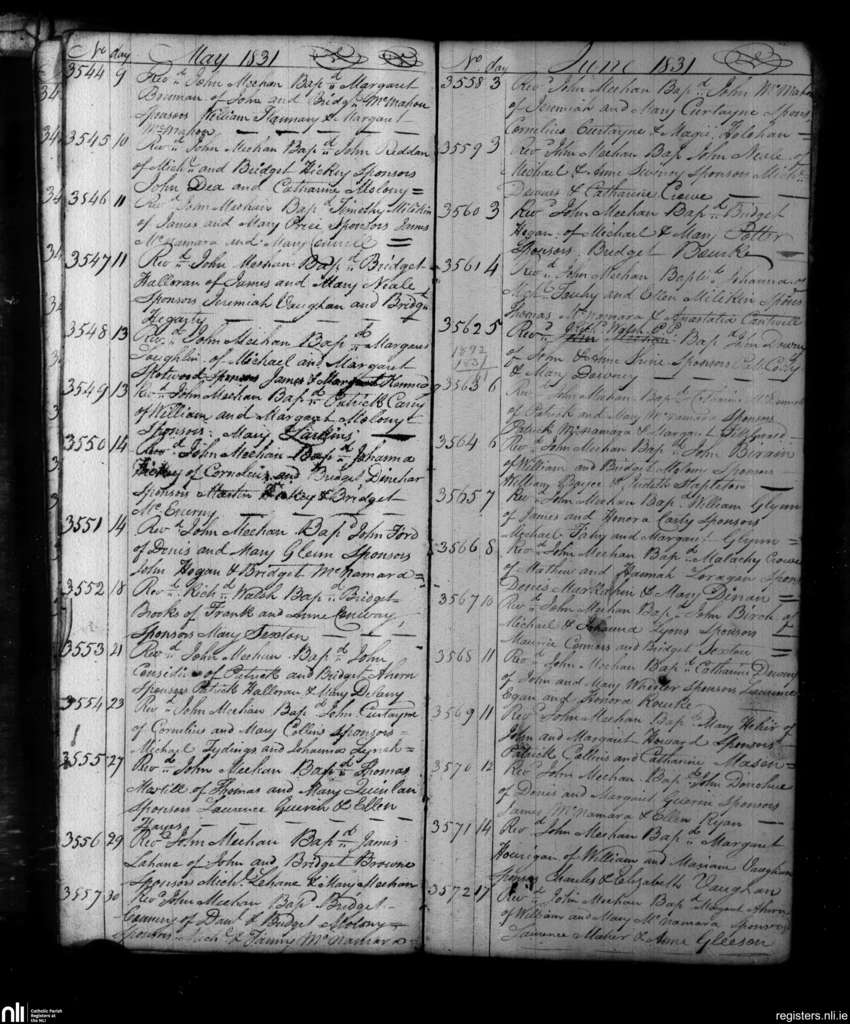 No day May 1831
3544 9 Revd John Meehan Bapd Margaret
Brennan of John and Bridgt McMahon
Sponsors William Flannary & Margaret
McMahon
3545 10 Revd John Meehan Bapd John Reddan
of Michl and Bridget Hickey Sponsors
John Dea and Catharine Molony
3546 11 Revd John Meehan Bapd Timothy Milikin
of James and Mary Price Sponsors James
McNamara and Mary
3547 11 Revd John Meehan Bapd Bridget
Halloran of James and Mary Neale
Sponsors Jeremiah Vaughan and Bridgt
Hegarty
3548 13 Revd John Meehan Bapd Margaret
Laughlin of Michael and Margaret
Sponsors James & Margaret Kenned
3549 13 Revd John Meehan Bapd Patrick Carey
of William and Margaret Molony
Sponsors Mary Larkins
3550 14 Revd John Meehan Bapd Johanna
Hickey of Cornelius and Bridget Dinehar
Sponsors Martin Hickey & Bridget
McEnerny
3551 14 Revd John Meehan Bapd John Ford
of Denis and Mary Glein Sponsors
John Hogan & Bridget McNamara
3552 18 Revd Richd Walsh Bapd Bridget
Brooks of Frank and Anne Conway
Sponsors Mary Sexton
3553 21 Revd John Meehan Bapd John
Considin of Patrick and Bridget Ahern
Sponsors Patrick Halloran & Mary Delany
3554 23 Revd John Meehan Bapd John Curtayne
of Cornelius and Mary Collins Sponsors
Michael Lydings and Johanna Lynch
3555 27 Revd John Meehan Bapd Thomas
of Thomas and Mary Quinlan
Sponsors Laurence Guerin & Ellen
Hayes
3556 29 Revd John Meehan Bapd James
Lahane of John and Bridget Browne
Sponsors Michl Lehane & Mary Meehan
3557 30 Revd John Meehan Bapd Bridget
of Danl & Bridget Molony
Sponsors Michl & Fanny McNamara
No day June 1831
3558 3 Revd John Meehan Bapd John McMahon
of Jeremiah and Mary Curtayne Spons
Cornelius Curtayne & Margt Holohan
3559 3 Revd John Meehan Bap John Neale of
Michael & Anne Sweeny Sponsors Michl
& Catharine Crowe
3560 3 Revd John Meehan Bapd Bridget
Hogan of Michael & Mary
Sponsors Bridget Bourke
3561 4 Revd John Meehan Bapd Johanna
Michl Fouhy and Ellen Milikin Spons
Thomas McNamara & Anastatia Cantwell
3562 5 Revd Richd Walsh C.C. John Meehan Bapd John Downy
of John & Anne Sponsors Patt Cody
& Mary Downy
1892
1831
3563 6 Revd John Meehan Bapd
of Patrick and Mary McNamara Sponsors
Patrick McNamara & Margaret
3564 6 Revd John Meehan Bapd John
of William and Bridget Molony Sponsors
William Boyce & Judith Stapleton
3565 7 Revd John Meehan Bap William Glynn
of James and Honora Carty Sponsors
Michael Fahy and Margaret Glynn
3566 8 Revd John Meehan Bapd Malachy Crowe
of Mathew and Hannah Loragan Spons
Denis & Mary Dinan
3567 10 Revd John Meehan Bapd John Birch of
Michael & Johanna Lyons Sponsors
Maurice Connors and Bridget Sexton
3568 11 Revd John Meehan Bapd Catharine Downy
of John and Mary Wheeler Sponsors Laurence
Egan and Honora Rourke
3569 11 Revd John Meehan Bapd Mary Hehir of
John and Margaret Howard Sponsors
Patrick Collins and Catharine Mason
3570 12 Revd John Meehan Bapd John Donohue
of Denis and Margaret Guerin Sponsors
James McNamara & Ellen Ryan
3571 14 Revd John Meehan Bapd Margaret
Hourigan of William and Mariam Vaughan
Spons Charles & Elizabeth Vaughan
3572 17 Revd John Meehan Bapd Margaret Ahern
of William and Mary McNamara Sponsors
Laurence Maher & Anne Gleeson
nli Catholic Parish
Registers at
the NLI
registers.nli.ie